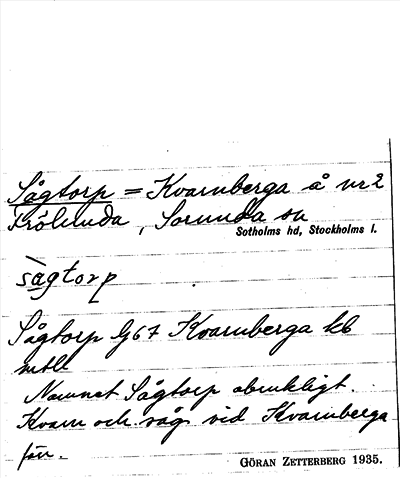 Sågtorp = Kvarnberga å nr 2
Frölunda, Sorunda sn
Sotholms hd, Stockholms l.
sågtorp
Sågtorp lg 67 Kvarnberga kb
mtll
Namnet Sågtorp obrukligt.
Kvarn och såg vid Kvarnberga
förr.
GÖRAN ZETTERBERG 1935.